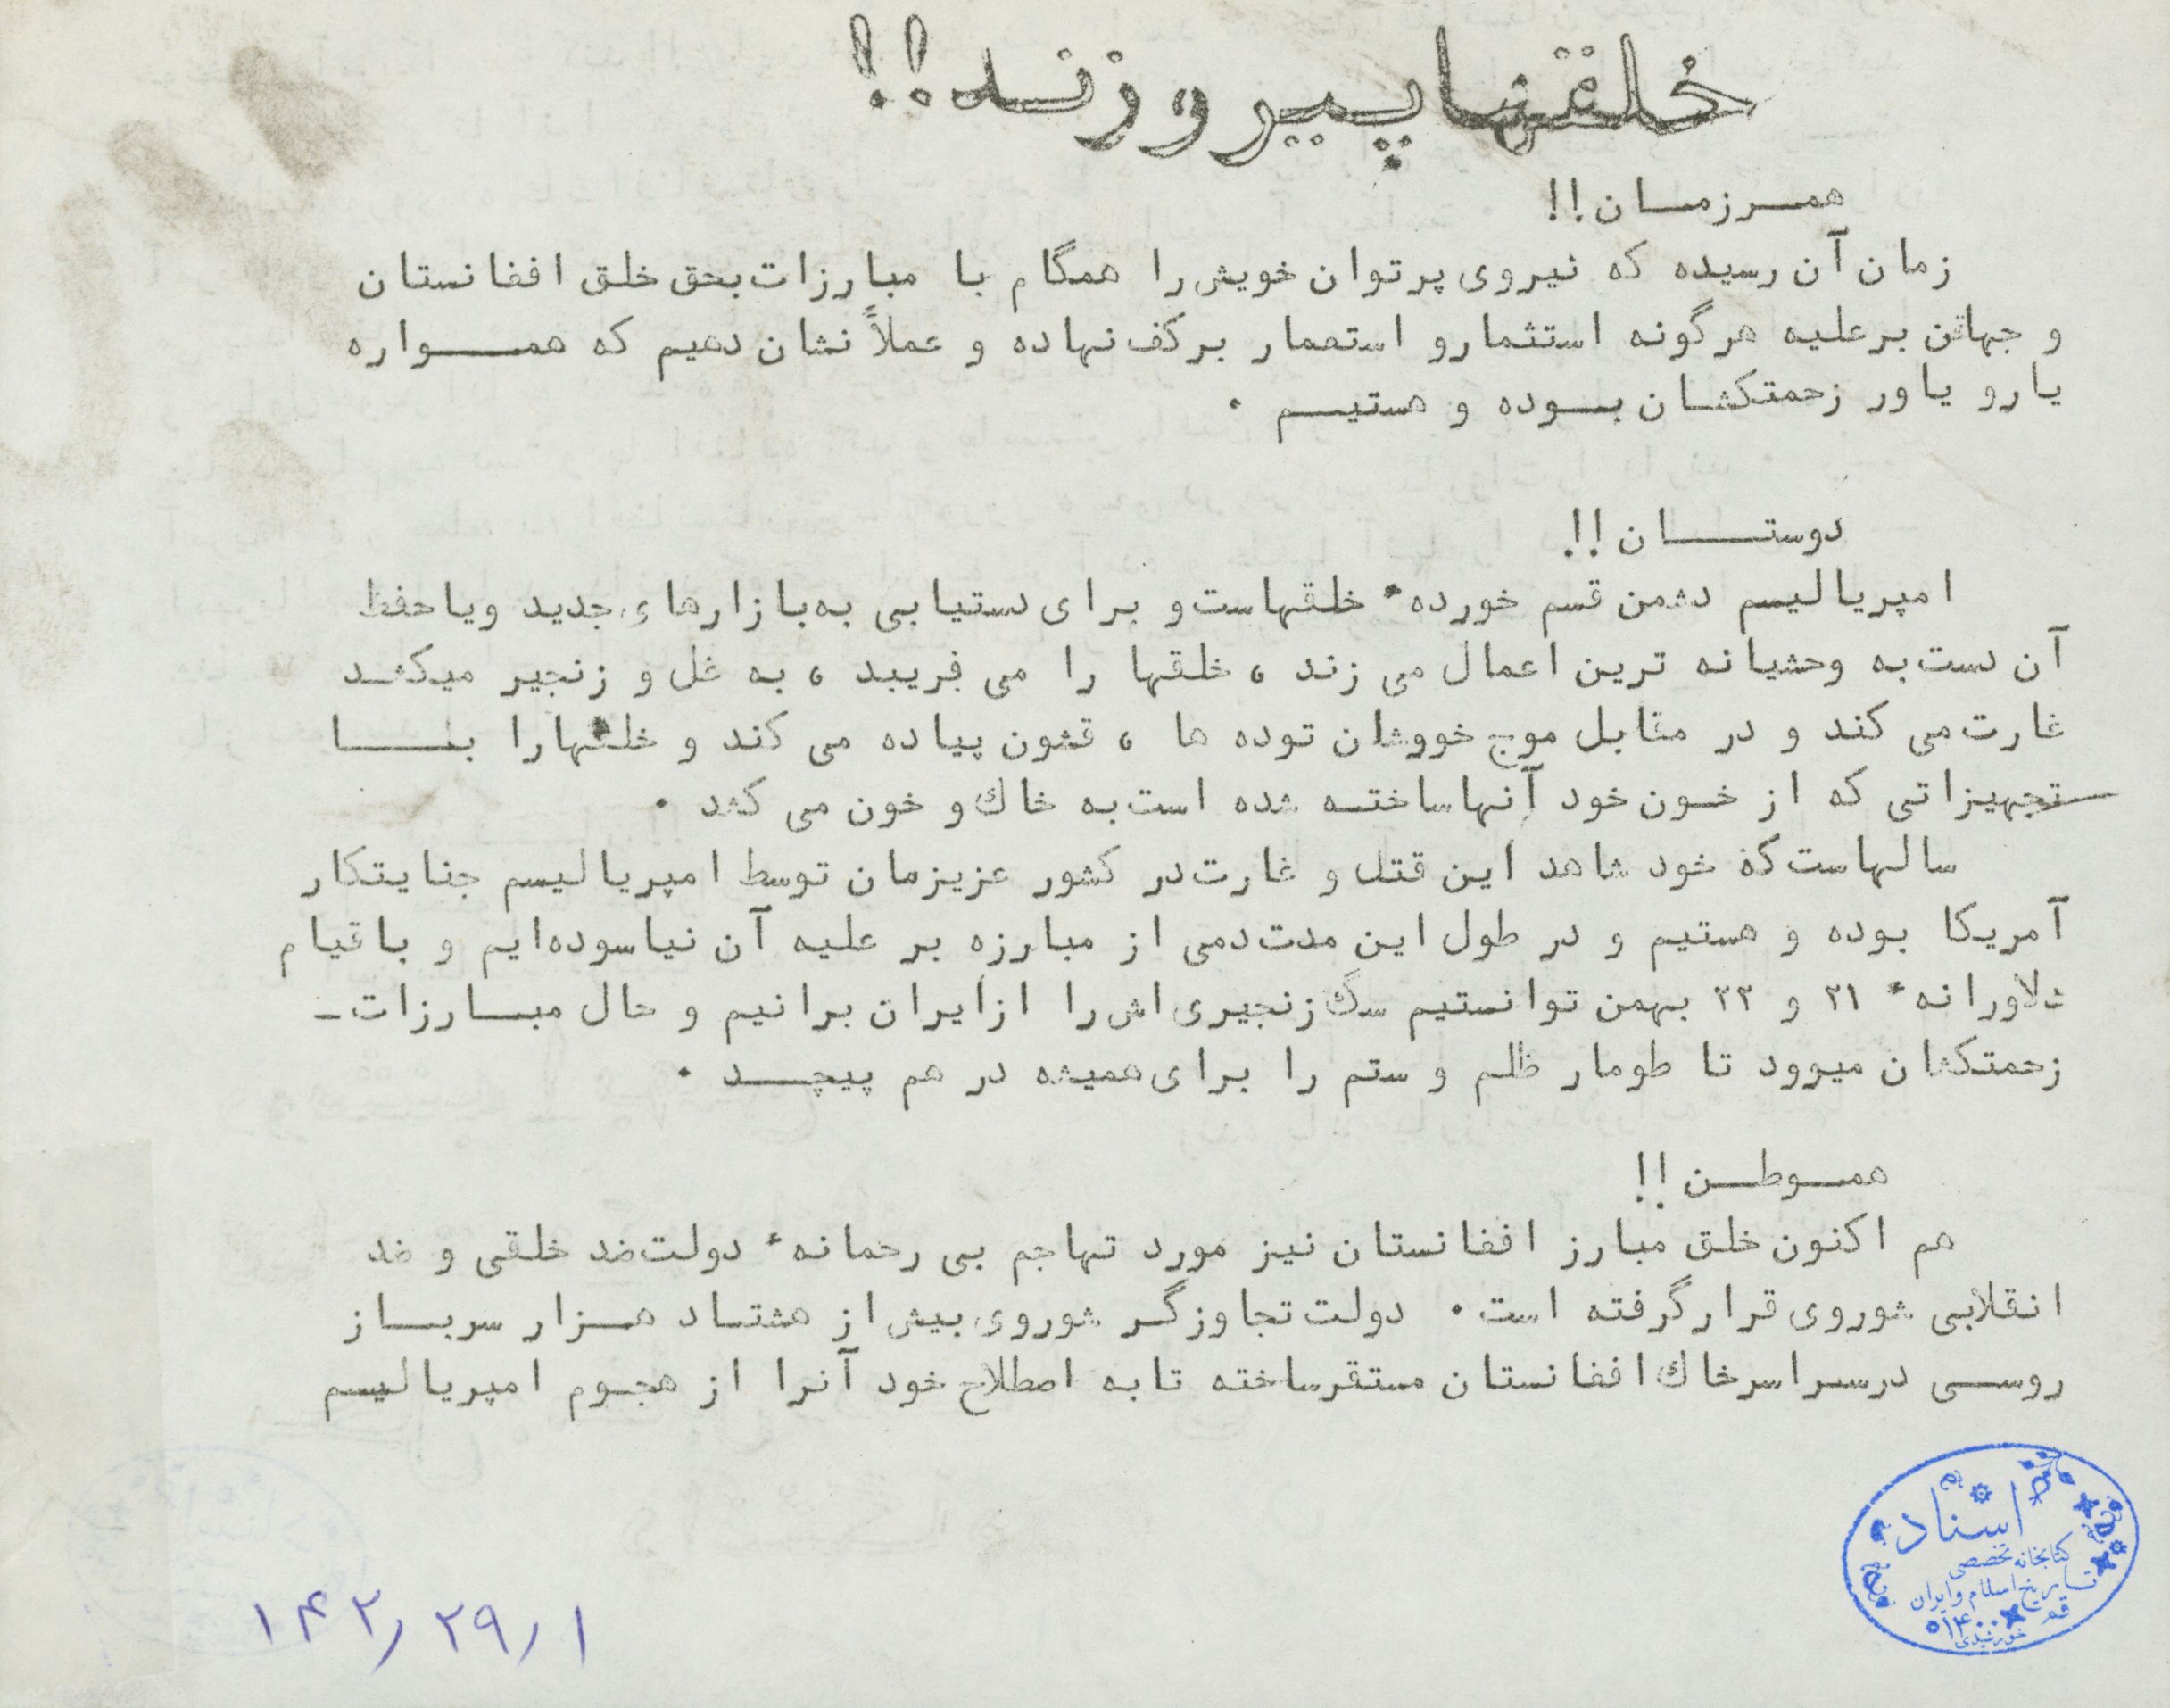 خلقها پیروزند!!
همرزمان!!
زمان آن رسیده که نیروی پرتوان خویش را همگام با مبارزات بحق خلق افغانستان
و جهان برعلیه هرگونه استثمارو استعمار برکف نهاده و عملاً نشان دهیم که همواره
یارو یاور زحمتکشان بوده و هستیم .
دوستان!!
امپریالیسم دشمن قسم خورده ٔ خلقهاست و برای دستیابی به بازارهای جدید ویا حفظ
آن دست به وحشیانه ترین اعمال می زند ، خلقها را می فریبد ، به غل و زنجیر میکشد
غارت می کند و در مقابل موج خووشان توده ها ، قشون پیاده می کند و خلقهارا بـا
تجهیزاتی که از خون خود آنها ساخته شده است به خاك و خون می کشد .
سالهاست که خود شاهد این قتل و غارت در کشور عزیزمان توسط امپریالیسم جنایتکار
آمریکا بوده و هستیم و در طول این مدت دمی از مبارزه بر علیه آن نیاسوده‌ایم و با قیام
دلاورانه ٔ ۲۱ و ۲۲ بهمن توانستیم سگ زنجیری اش را ازایران برانیم و حال مبارزات ـ
زحمتکشان میوود تا طومار ظلم و ستم را برای همیشه در هم پیچد .
هموطن!!
هم اکنون خلق مبارز افغانستان نیز مورد تهاجم بی رحمانه ٔ دولت ضد خلقی و ضد
انقلابی شوروی قرارگرفته است . دولت تجاوزگر شوروی بیش از هشتاد هزار سرباز
روسی درسراسرخاك افغانستان مستقرساخته تا به اصطلاح خود آنرا از هجوم امپریالیسم
اسناد
کتابخانه تخصصی
تاریخ اسلام و ایران
قم
خورشیدی
۱۴۲٫۲۹٫۱